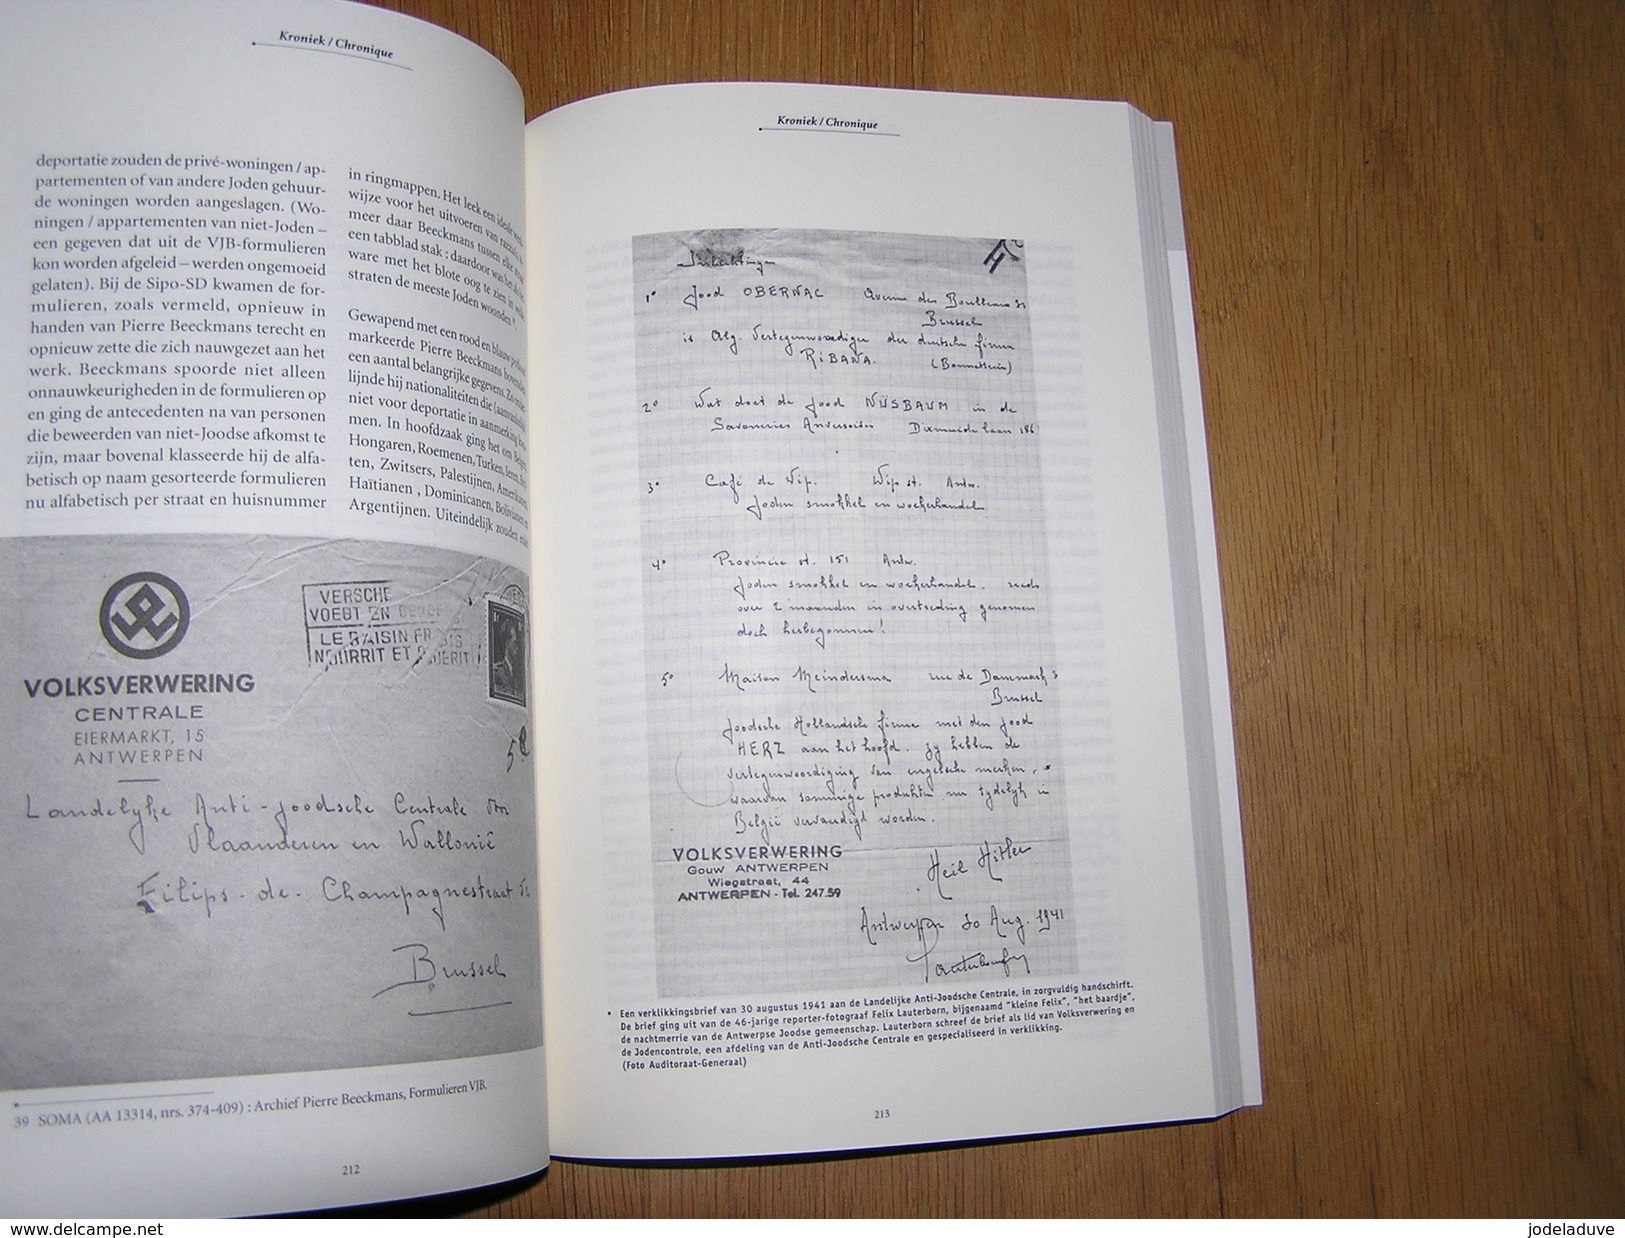 Kroniek / Chronique
deportatie zouden de privé-woningen / ap-
partementen of van andere Joden gehuur-
de woningen worden aangeslagen. (Wo-
ningen / appartementen van niet-Joden –
een gegeven dat uit de VJB-formulieren
kon worden afgeleid – werden ongemoeid
gelaten). Bij de Sipo-SD kwamen de for-
mulieren, zoals vermeld, opnieuw in
handen van Pierre Beeckmans terecht en
opnieuw zette die zich nauwgezet aan het
werk. Beeckmans spoorde niet alleen
onnauwkeurigheden in de formulieren op
en ging de antecedenten na van personen
die beweerden van niet-Joodse afkomst te
zijn, maar bovenal klasseerde hij de alfa-
betisch op naam gesorteerde formulieren
nu alfabetisch per straat en huisnummer
in ringmappen. Het leek een ideale
wijze voor het uitvoeren van razzia's,
meer daar Beeckmans tussen elke straat
een tabblad stak : daardoor was het
ware met het blote oog te zien in welke
straten de meeste Joden woonden
Gewapend met een rood en blauw potlood
markeerde Pierre Beeckmans bovendien
een aantal belangrijke gegevens.
lijnde hij nationaliteiten die (aanvankelijk)
niet voor deportatie in aanmerking
men. In hoofdzaak ging het om Belgen,
Hongaren, Roemenen, Turken, Ieren,
ten, Zwitsers, Palestijnen, Amerikanen,
Haïtianen , Dominicanen, Bolivianen en
Argentijnen. Uiteindelijk zouden
VERSCHE
VOEDT EN
LE RAISIN FRAIS
NOURRIT ET GUERIT
VOLKSVERWERING
CENTRALE
EIERMARKT, 15
ANTWERPEN
Landelyke Anti-Joodsche Centrale voor
Vlaanderen en Wallonië
Filips-de-Champagnestraat
Brussel
39 SOMA (AA 13314, nrs. 374-409) : Archief Pierre Beeckmans, Formulieren VJB.
212
Kroniek / Chronique
Inlichtingen
1° Jood OBERNAC Avenue des
Brussel
is Alg. Vertegenwoordiger der duitsche firma
RIBANA. (Bonneterie)
2° Wat doet de Jood NÜSBAUM in de
Savonneries Anversoises Dixmuidelaan 186
3° Café de Wip. Wip st. Antw.
Joden smokkel en woekerhandel
4° Provincie st. 151 Antw.
Joden smokkel en woekerhandel. reeds
over 2 maanden in overtreding genomen
doch herbegonnen!
5° Maison Meindersma rue de Danemark
Brussel
Joodsche Hollandsche firma met den Jood
HERZ aan het hoofd. Zy hebben de
vertegenwoordiging van engelsche merken,
waarvan sommige produkten nu tydelyk in
België vervaardigd worden.
VOLKSVERWERING
Gouw ANTWERPEN
Wiegstraat, 44
ANTWERPEN - Tel. 247.59
Heil Hitler
Antwerpen 30 Aug. 1941
Lauterborn
• Een verklikkingsbrief van 30 augustus 1941 aan de Landelijke Anti-Joodsche Centrale, in zorgvuldig handschrift.
De brief ging uit van de 46-jarige reporter-fotograaf Felix Lauterborn, bijgenaamd "kleine Felix", "het baardje",
de nachtmerrie van de Antwerpse Joodse gemeenschap. Lauterborn schreef de brief als lid van Volksverwering en
de Jodencontrole, een afdeling van de Anti-Joodsche Centrale en gespecialiseerd in verklikking.
(Foto Auditoraat-Generaal)
213
delcampe.net
jodeladuve